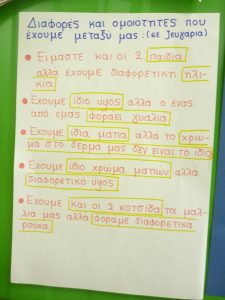 Διαφορές και ομοιότητες που
έχουμε μεταξύ μας: (σε ζευγάρια)
Είμαστε και οι 2 παιδιά
αλλά έχουμε διαφορετική ηλι-
κία
Έχουμε ίδιο ύψος αλλά ο ένας
από εμάς φοράει γυαλιά
Έχουμε ίδια μάτια αλλά το χρώ-
μα στο δέρμα μας δεν είναι το ίδιο
Έχουμε ίδιο χρώμα ματιών αλλά
διαφορετικό ύψος
Έχουμε και οι 2 κοτσίδα τα μαλ-
λιά μας αλλά φοράμε διαφορετικά
ρούχα